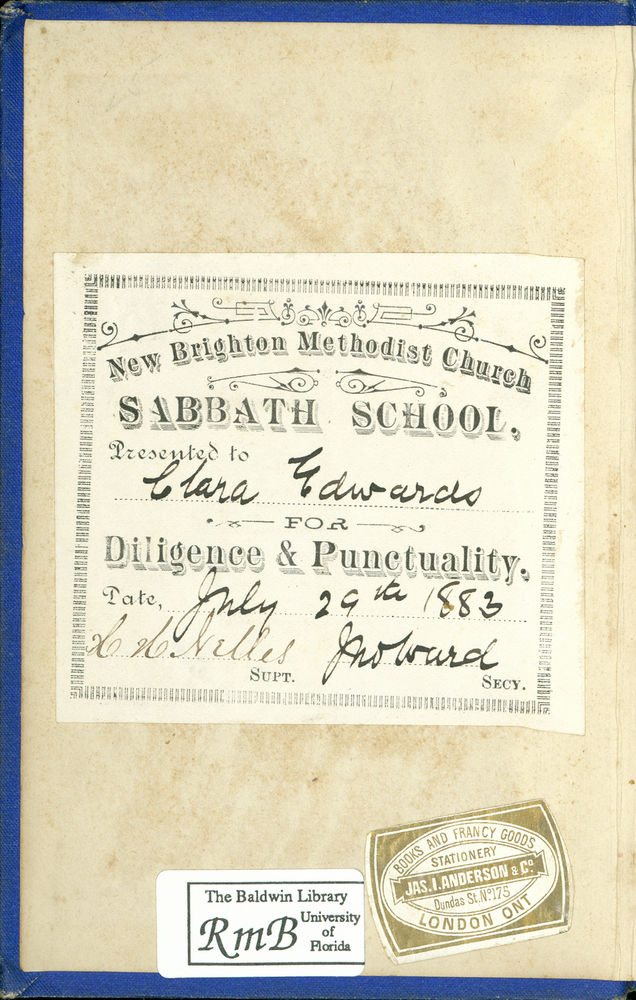 New Brighton Methodist Church
SABBATH SCHOOL.
Presented to
Clara Edwards
FOR
Diligence & Punctuality.
Date, July 29th 1883
H H Nelles
SUPT.
Jno Ward
SECY.
BOOKS AND FRANCY GOODS
STATIONERY
JAS. I. ANDERSON & Co.
Dundas St. No 175
LONDON ONT
The Baldwin Library
RmB
University
of
Florida